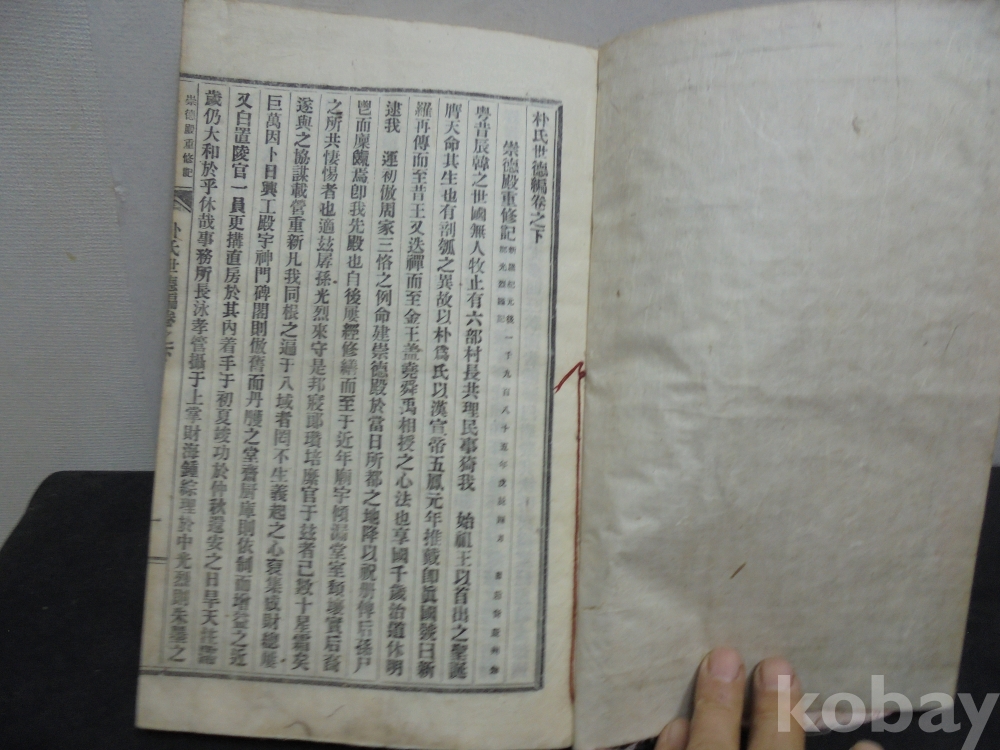 朴氏世德編卷之下
崇德殿重修記
粤昔辰韓之世國無人牧止有六部村長共理民事猗我 始祖王以首出之聖誕
膺天命其生也有剖瓠之異故以朴爲氏以漢宣帝五鳳元年推戴卽眞國號曰新
羅再傳而至昔王又迭禪而至金王盖堯舜禹相授之心法也享國千歲治道休明
逮我 運初倣周家三恪之例命建崇德殿於當日所都之地降以祝幣俾后孫尸
邑而廩餼焉卽我先殿也自後屢經修繕而至于近年廟宇傾漏堂室頹壞實后裔
之所共悽惕者也適玆孱孫光烈來守是邦寢郞瓚培縻官于玆者已數十星霜矣
遂與之協謀載營重新凡我同根之遍于八域者罔不生義起之心夏集歲財總雇
巨萬因卜日興工殿宇神門碑閣則倣舊而丹雘之堂齋厨庫則依制而增益之近
又白置陵官一員更搆直房於其內着手于初夏竣功於仲秋還安之日旱天注霈
歲仍大和於乎休哉事務所長泳孝管攝于上掌財海鍾綜理於中光烈則朱墨之
崇德殿重修記
朴氏世德編卷之下
kobay